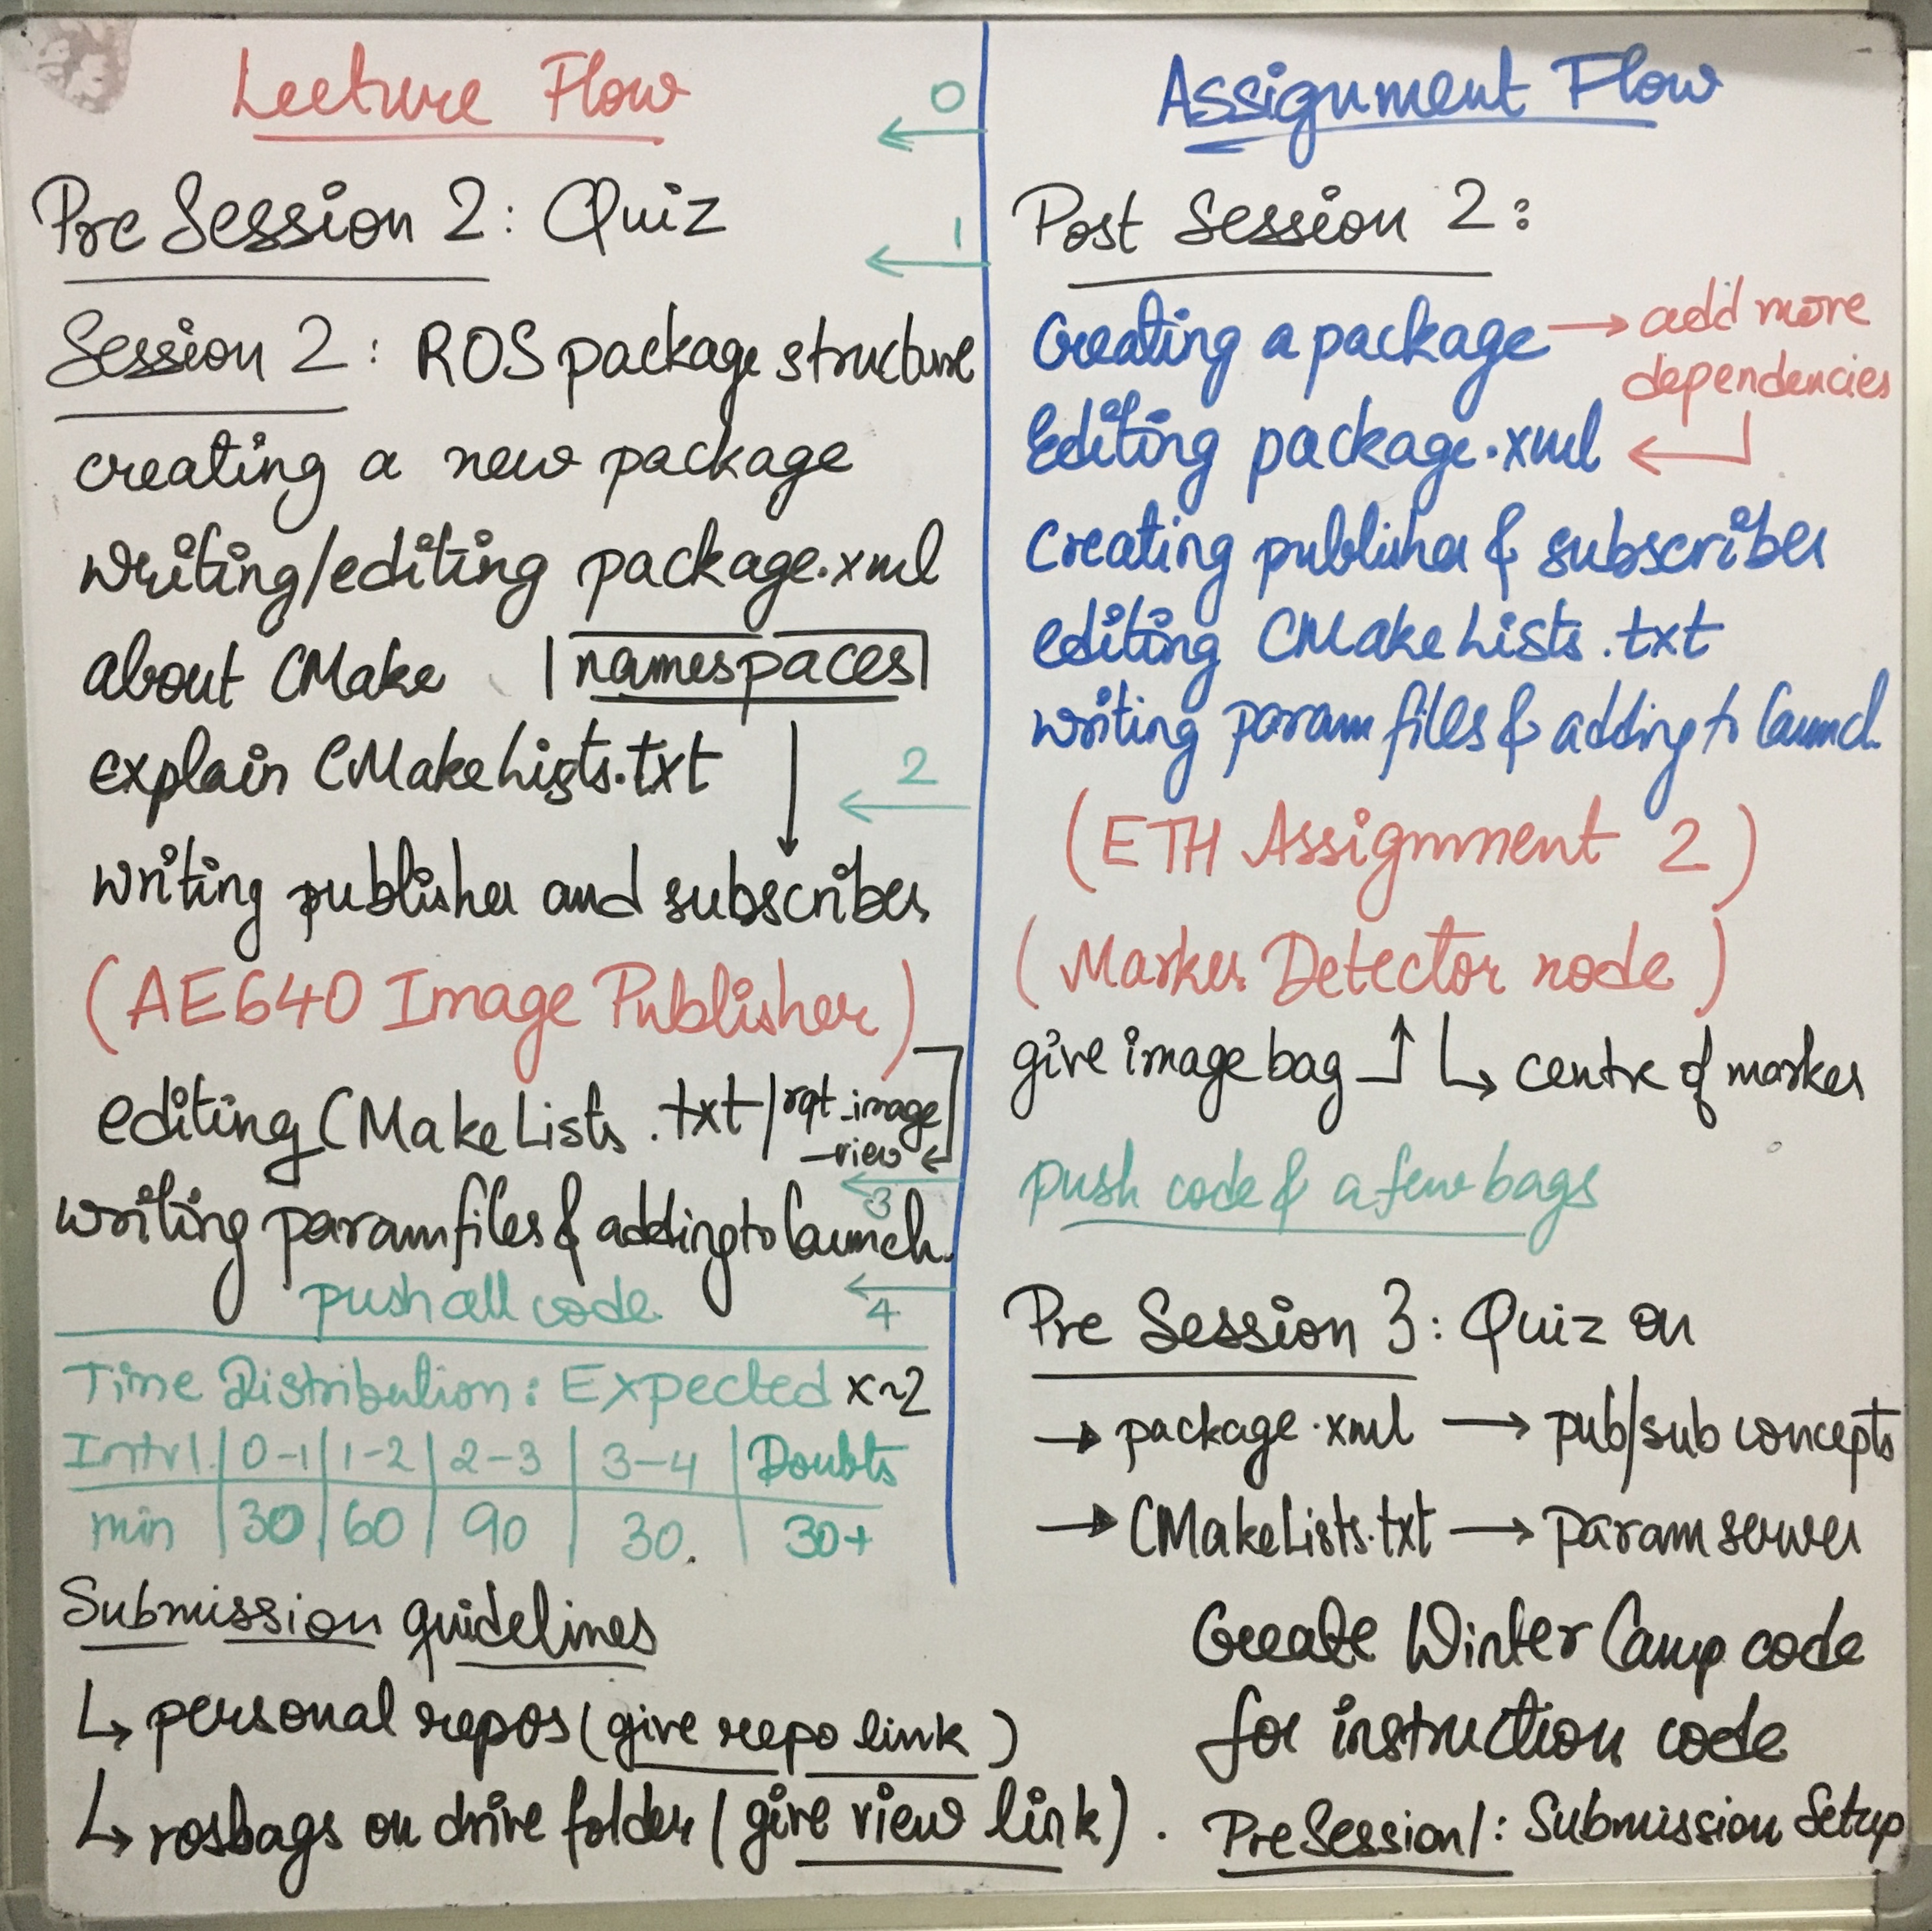 Lecture Flow
0
Pre Session 2: Quiz
1
Session 2: ROS package structure
creating a new package
writing/editing package.xml
about CMake | namespaces |
explain CMakeLists.txt
2
writing publisher and subscriber
(AE640 Image Publisher)
editing CMakeLists.txt / rqt_image
_view
3
writing param files & adding to launch.
push all code
4
Time Distribution: Expected x~2
Intrvl. | 0-1 | 1-2 | 2-3 | 3-4 | Doubts
min | 30 | 60 | 90 | 30. | 30+
Submission guidelines
↳ personal repos (give repo link)
↳ rosbags on drive folder (give view link).
Assignment Flow
Post Session 2:
Creating a package → add more
dependencies
Editing package.xml ←
Creating publisher & subscriber
editing CMakeLists.txt
writing param files & adding to launch
(ETH Assignment 2)
(Marker Detector node)
give image bag ↑ ↳ centre of marker
push code & a few bags
Pre Session 3: Quiz on
→ package.xml → pub/sub concepts
→ CMakeLists.txt → param server
Create Winter Camp code
for instruction code
Pre Session 1: Submission Setup